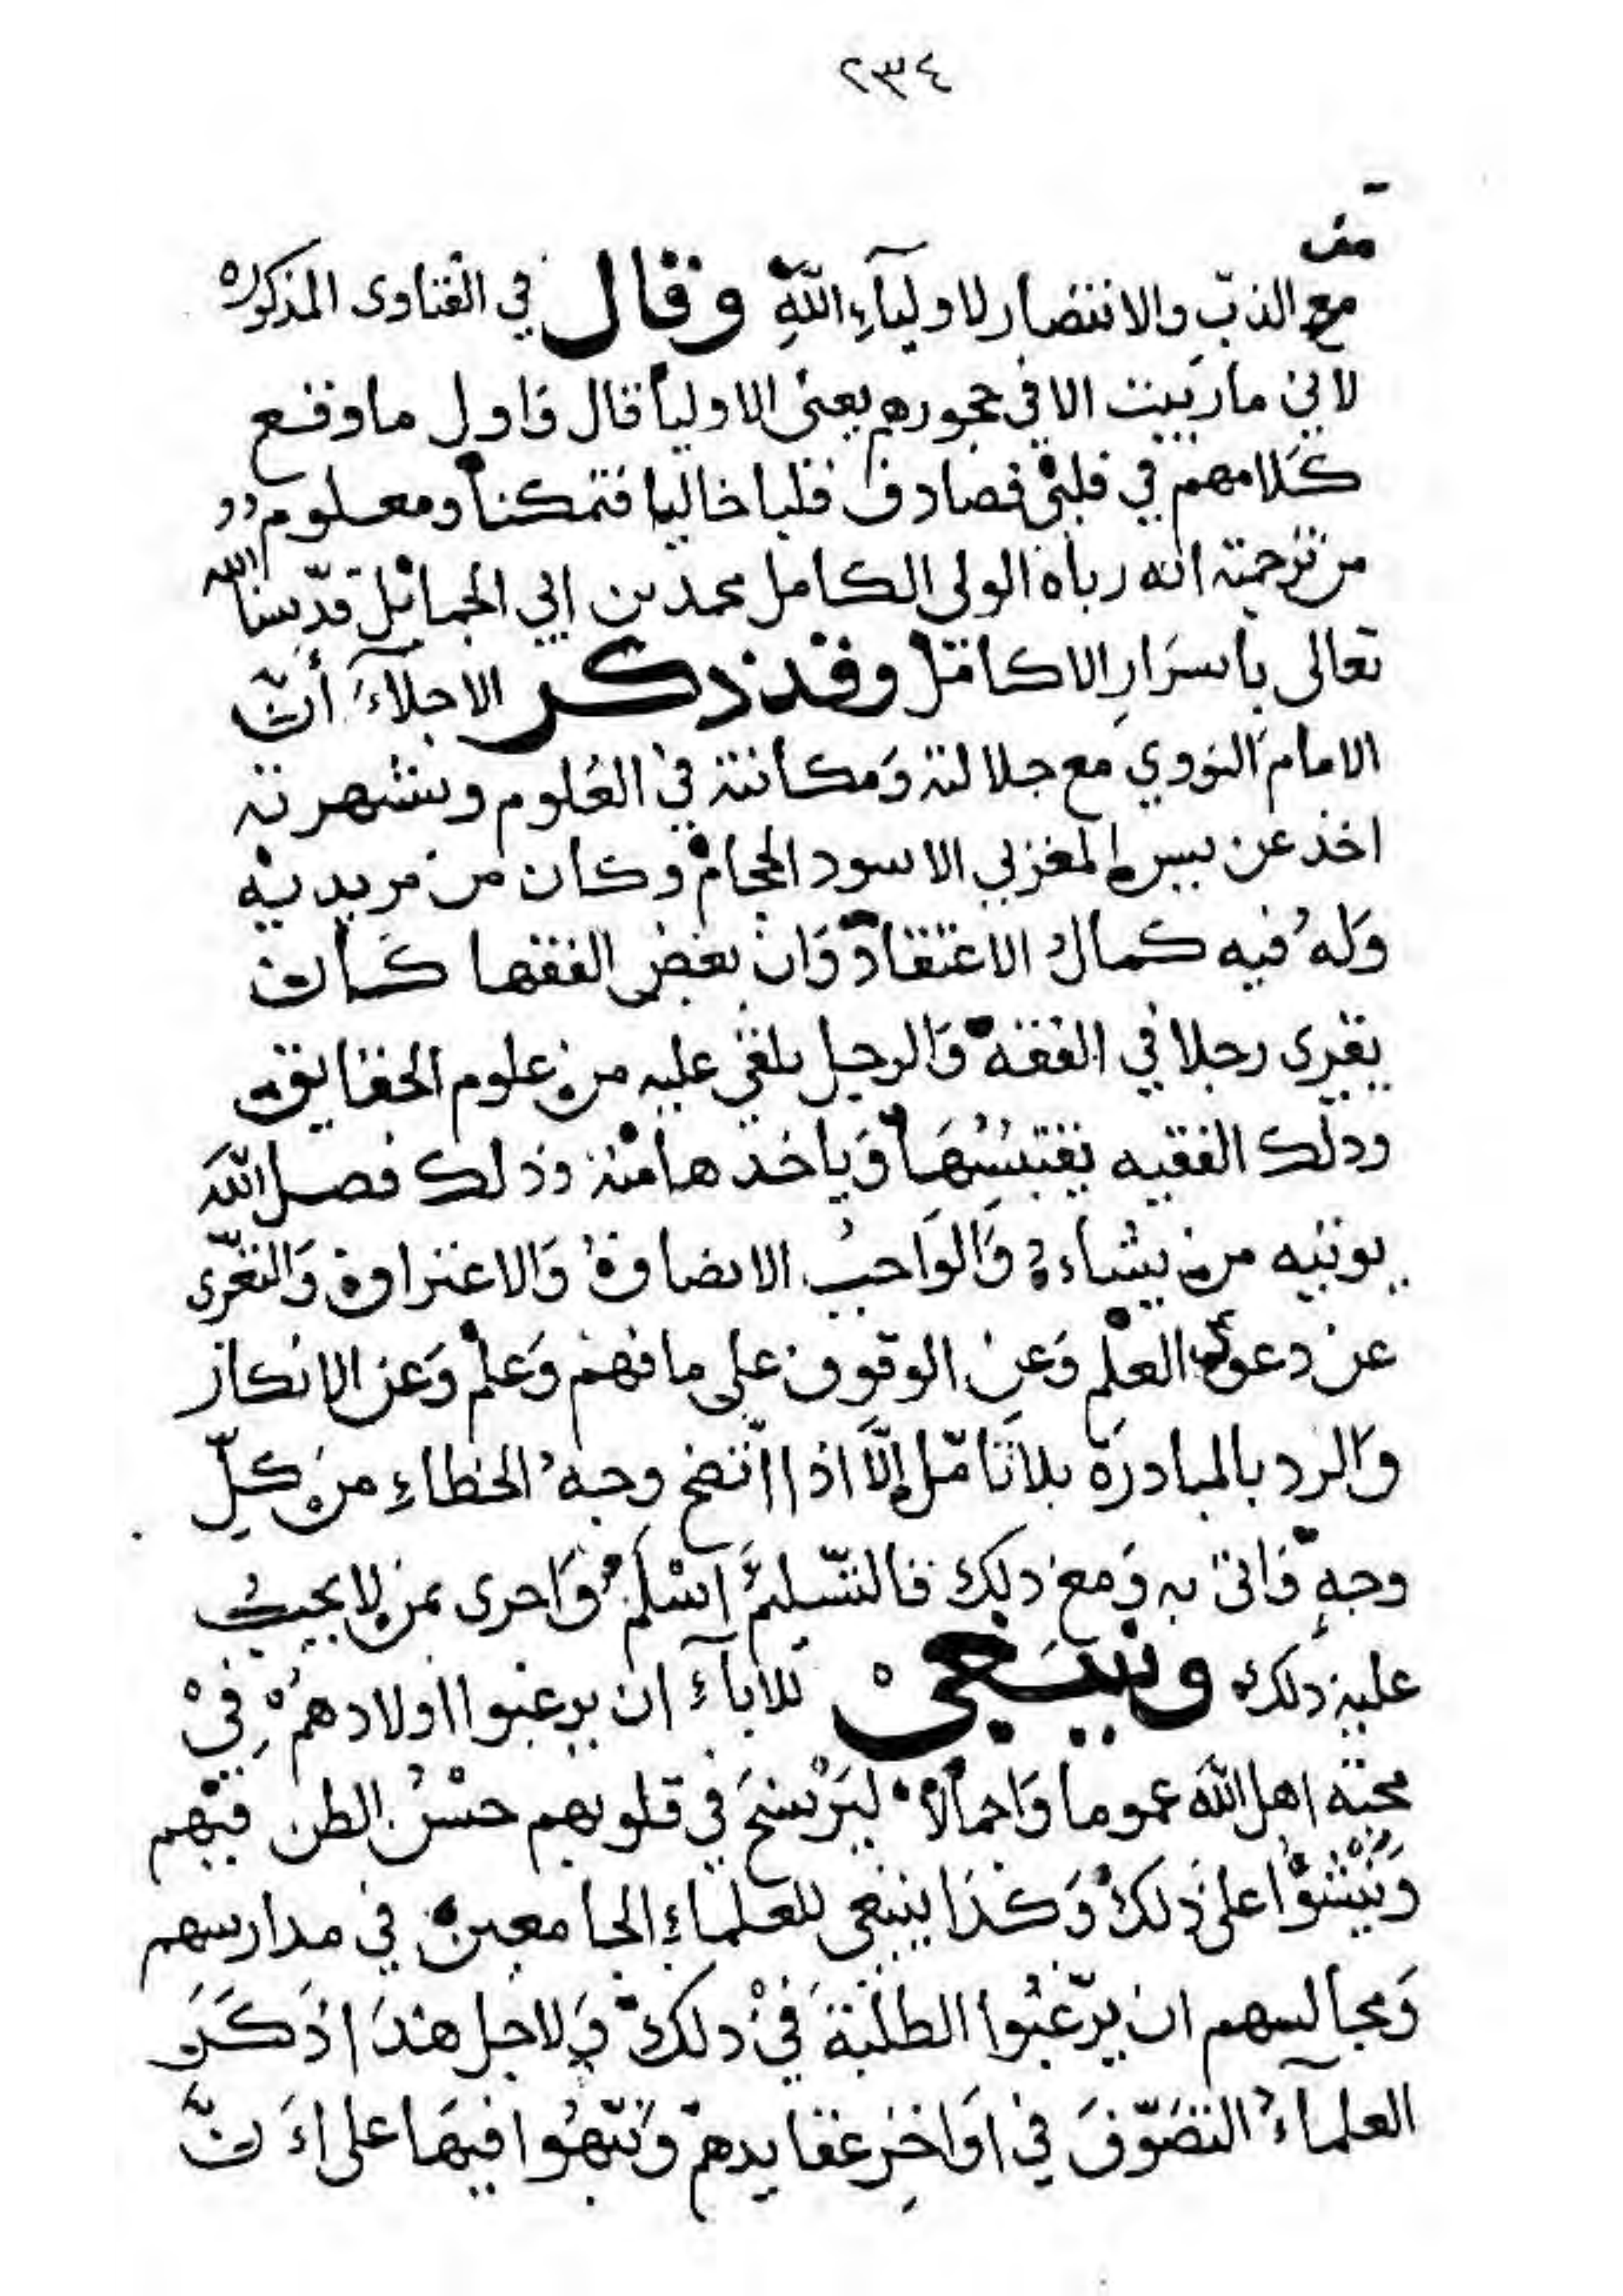 ٢٣٤
مع الذبّ والانتصار لاوليآءِ اللّهِ وقال في الفتاوى المذكوره
لاني ماربيت الا في حجورهم يعنى الاوليا قال فاول ما وقع
كلامهم في قلبي فصادف قلبا خاليا فتمكنا ومعلوم
من ترجمته انه رباه الولى الكامل محمد بن ابي الحمائل قدّسنا الله
تعالى باسرارِ الاكامل وقد ذكر الاجلآءَ أنّ
الامام النووي مع جلالته وَمكانته في العُلوم وشهرته
اخذ عن يس المغربي الاسود الحجام وكان من مريديه
وَلهُ فيه كمال الاعتقاد وَان بعض الفقها كَان
يقرى رجلا في الفقه وَالرجل يلقي عليه من علوم الحقايق
وذلك الفقيه يقتبسُهَا وَياخذها منه وذلك فضل اللّهَ
يوتيه من يشاء وَالوَاجبُ الانصافُ وَالاعتراف وَالتعّرى
عن دعوى العلم وَعنِ الوقوف على ما فهم وَعلم وَعن الانكار
وَالرد بالمبادرة بلا تامّل إلَّا اذا اتضح وجهُ الخطاءِ من كلّ
وجهٍ فاتى به وَمع ذلك فالتّسليمُ اسْلَم وَاحرى بمن لا يجبُ
عليه ذلك وينبَغيْ للابآءَ ان يرغبوا اولادهمْ فِيْ
محبّة اهل اللّه عموما وَاجمالا ليَرْسَخَ في قلوبهم حسْنُ الظن فيْهم
وَيَنْشَؤُا على ذلك وَكذا ينبغى للعلماءِ الجامعين في مدارسهم
وَمجالسهم ان يرّغبُوا الطلَبَةَ فيْ ذلك وَلاجل هذَا ذَكَرَ
العلمآءُ التصَوّفَ في اوَاخِر عقايدهم وَنبّهُوا فيهَا على اَنّ